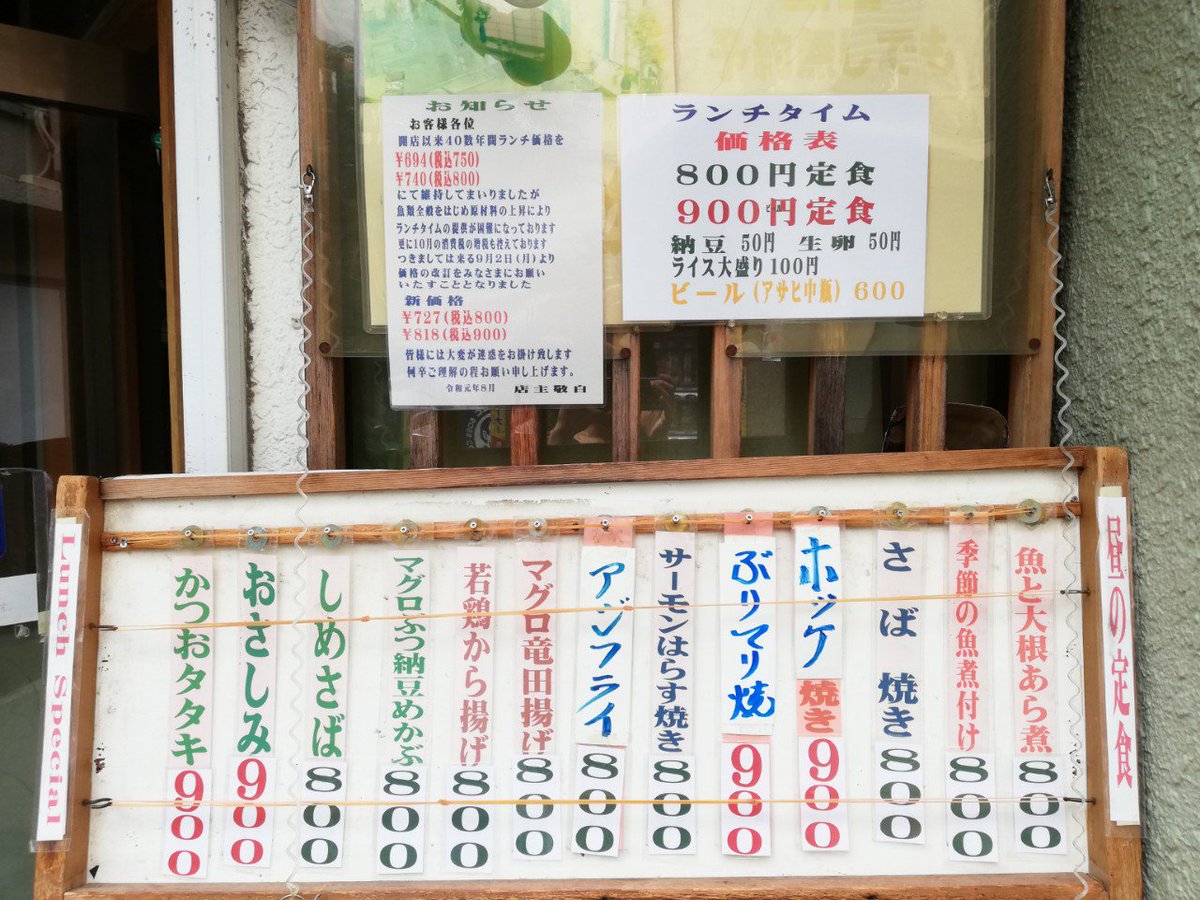 お知らせ
お客様各位
開店以来40数年間ランチ価格を
¥694(税込750)
¥740(税込800)
にて維持してまいりましたが
魚類全般をはじめ原材料の上昇により
ランチタイムの提供が困難になっております
更に10月の消費税の増税も控えております
つきましては来る9月2日(月)より
価格の改訂をみなさまにお願い
いたすこととなりました
新価格
¥727(税込800)
¥818(税込900)
皆様には大変が迷惑をお掛け致します
何卒ご理解の程お願い申し上げます。
令和元年8月 店主敬白
ランチタイム
価格表
800円定食
900円定食
納豆 50円 生卵 50円
ライス大盛り100円
ビール(アサヒ中瓶) 600
昼の定食
魚と大根あら煮 800
季節の魚煮付け 800
さば焼き 800
ホッケ焼き 900
ぶりマリ焼 900
サーモンはらす焼き 800
アジフライ 800
マグロ竜田揚げ 800
若鶏から揚げ 800
マグロぶつ納豆めかぶ 800
しめさば 800
おさしみ 900
かつおタタキ 900
Lunch Special